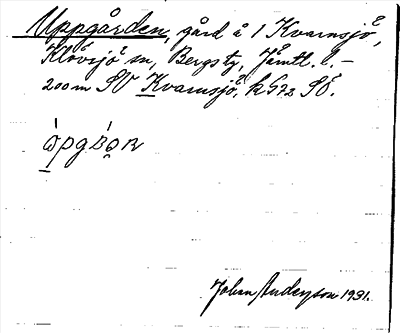 Uppgården, gård å 1 Kvarnsjö,
Klövsjö sn, Bergs tg, Jämtl. l. –
200 m SV Kvarnsjö, k 572 SÖ.
Johan Anderson 1931.